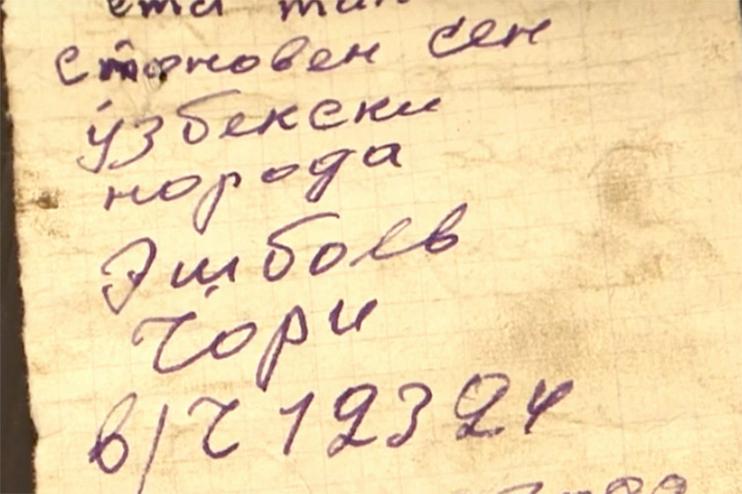 ета тан
становен сен
ўзбекски
норода
Эшбоев
Чори
в/ч 12324